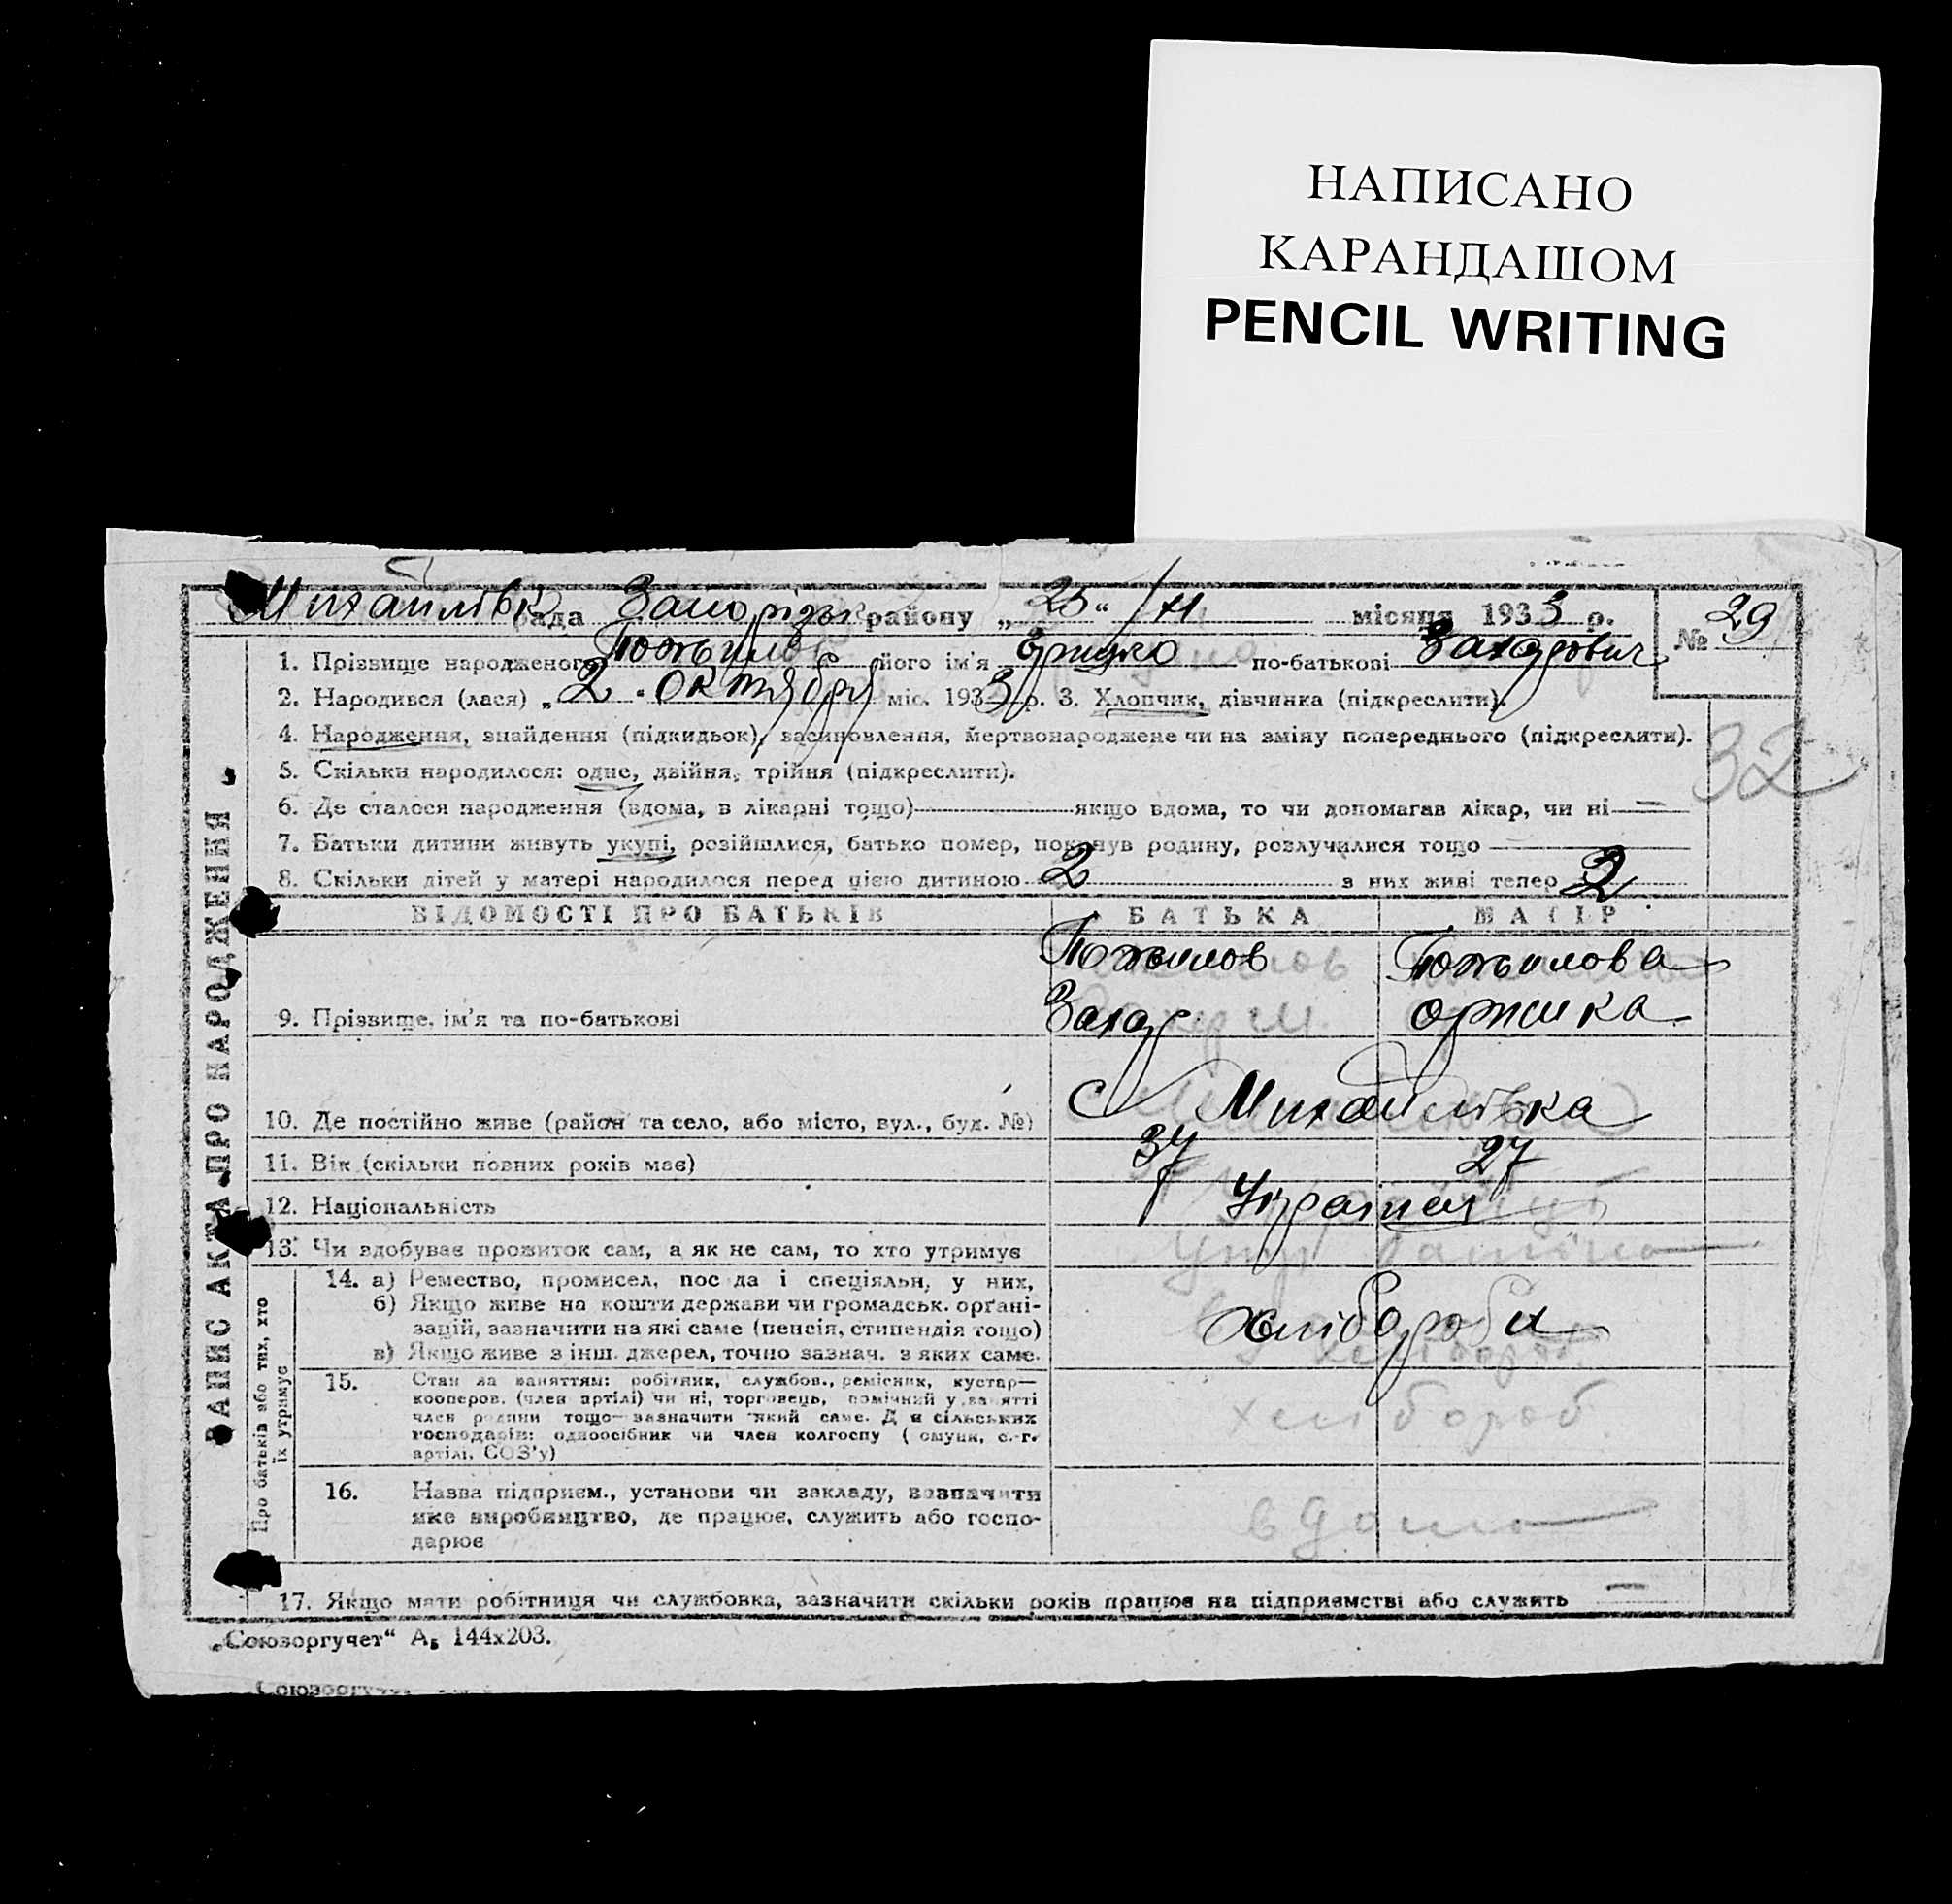 НАПИСАНО
КАРАНДАШОМ
PENCIL WRITING
Михайлівк рада Запорізьк району „25“ /XI місяця 1933 р.
№ 29
1. Прізвище народженого його ім'я Грицко по-батькові Захарович
2. Народився (лася) „2 " октября міс. 1933 р. 3. Хлопчик, дівчинка (підкреслити).
4. Народження, знайдення (підкидьок), засиновлення, мертвонароджене чи на зміну попереднього (підкреслити).
32
5. Скільки народилося: одне, двійня, трійня (підкреслити).
6. Де сталося народження (вдома, в лікарні тощо) якщо вдома, то чи допомагав лікар, чи ні —
7. Батьки дитини живуть укупі, розійшлися, батько помер, покинув родину, розлучилися тощо
8. Скільки дітей у матері народилося перед цією дитиною 2 з них живі тепер 2
ВІДОМОСТІ ПРО БАТЬКІВ БАТЬКА МАТІР
9. Прізвище, ім'я та по-батькові Захар
10. Де постійно живе (район та село, або місто, вул., буд. №) с Михайлівка
11. Вік (скільки повних років має) 37 27
12. Національність
13. Чи здобуває прожиток сам, а як не сам, то хто утримує
14. а) Ремество, промисел, посада і спеціяльн, у них,
б) Якщо живе на кошти держави чи громадськ. орґані-
зацій, зазначити на які саме (пенсія, стипендія тощо) хлібороби
в) Якщо живе з інш. джерел, точно зазнач. з яких саме.
15. Стан за заняттям: робітник, службов., ремісник, кустар—
кооперов. (член артілі) чи ні, торговець, помічний у занятті
член родини тощо—зазначити який саме. Для сільських хлібороб
господарів: одноосібник чи член колгоспу (комуни, с.-г.
артілі, СОЗ'у)
16. Назва підприєм., установи чи закладу, зазначити
яке виробництво, де працює, служить або госпо- вдома
дарює
17. Якщо мати робітниця чи службовка, зазначити скільки років працює на підприємстві або служить —
ЗАПИС АКТА ПРО НАРОДЖЕННЯ
Про батьків або тих, хто
їх утримує
„Союзоргучет“ А5 144x203.